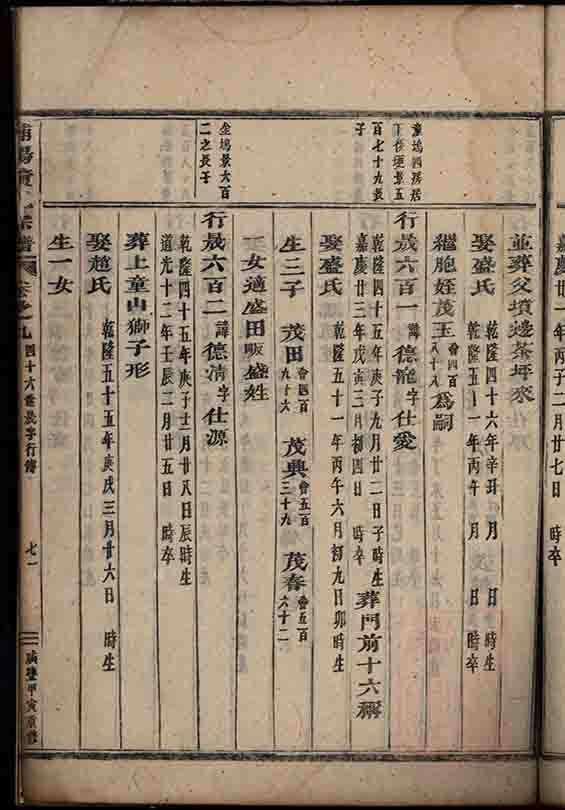 嘉慶
年
月
日
時卒
道光十一年辛卯二月廿七日
童塢四房居
下徐埂景五
百七十九長
子
金塢景六百
二之長子
並葬父墳邊茶坪來
娶盛氏
乾隆四十六年辛丑 月 日 時生
乾隆五十一年丙午 月 日 時卒
繼胞姪茂玉 會四百八十八 為嗣
行晟六百一 諱德龍字仕愛
乾隆四十五年庚子九月廿二日子時生
嘉慶廿三年戊寅三月初四日 時卒
葬門前十六稱
娶盛氏 乾隆五十一年丙午六月初九日卯時生
生三子 茂田 會四百九十六 茂興 會五百三十九 茂春 會五百六十二
一女適盛田畈盛姓
行晟六百二 諱德清字仕源
乾隆四十五年庚子十二月廿八日辰時生
道光十二年壬辰二月廿五日 時卒
葬上童山獅子形
娶趙氏 乾隆五十五年庚戌三月廿六日 時生
生一女
宗譜 卷之九 四十六世晟字行傳 七一 甲寅重修